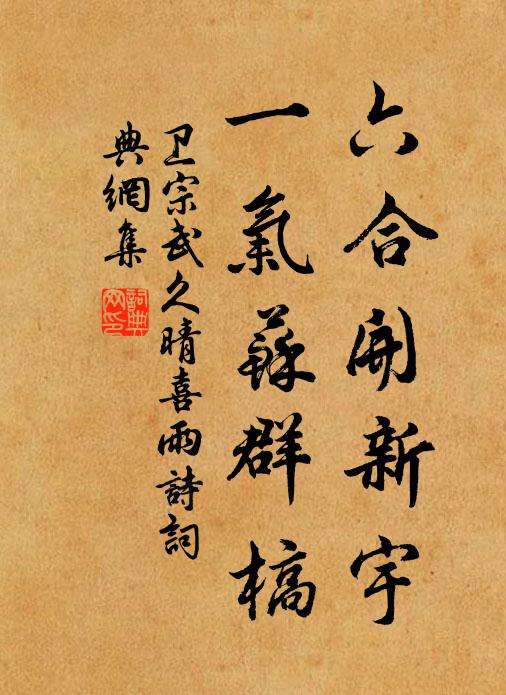 六合開新宇
一氣蘇群槁
卫宗武久晴喜雨詩詞
典網集
詞典
网印